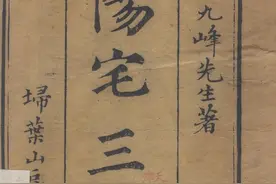 九峰先生著
陽宅三
埽葉山